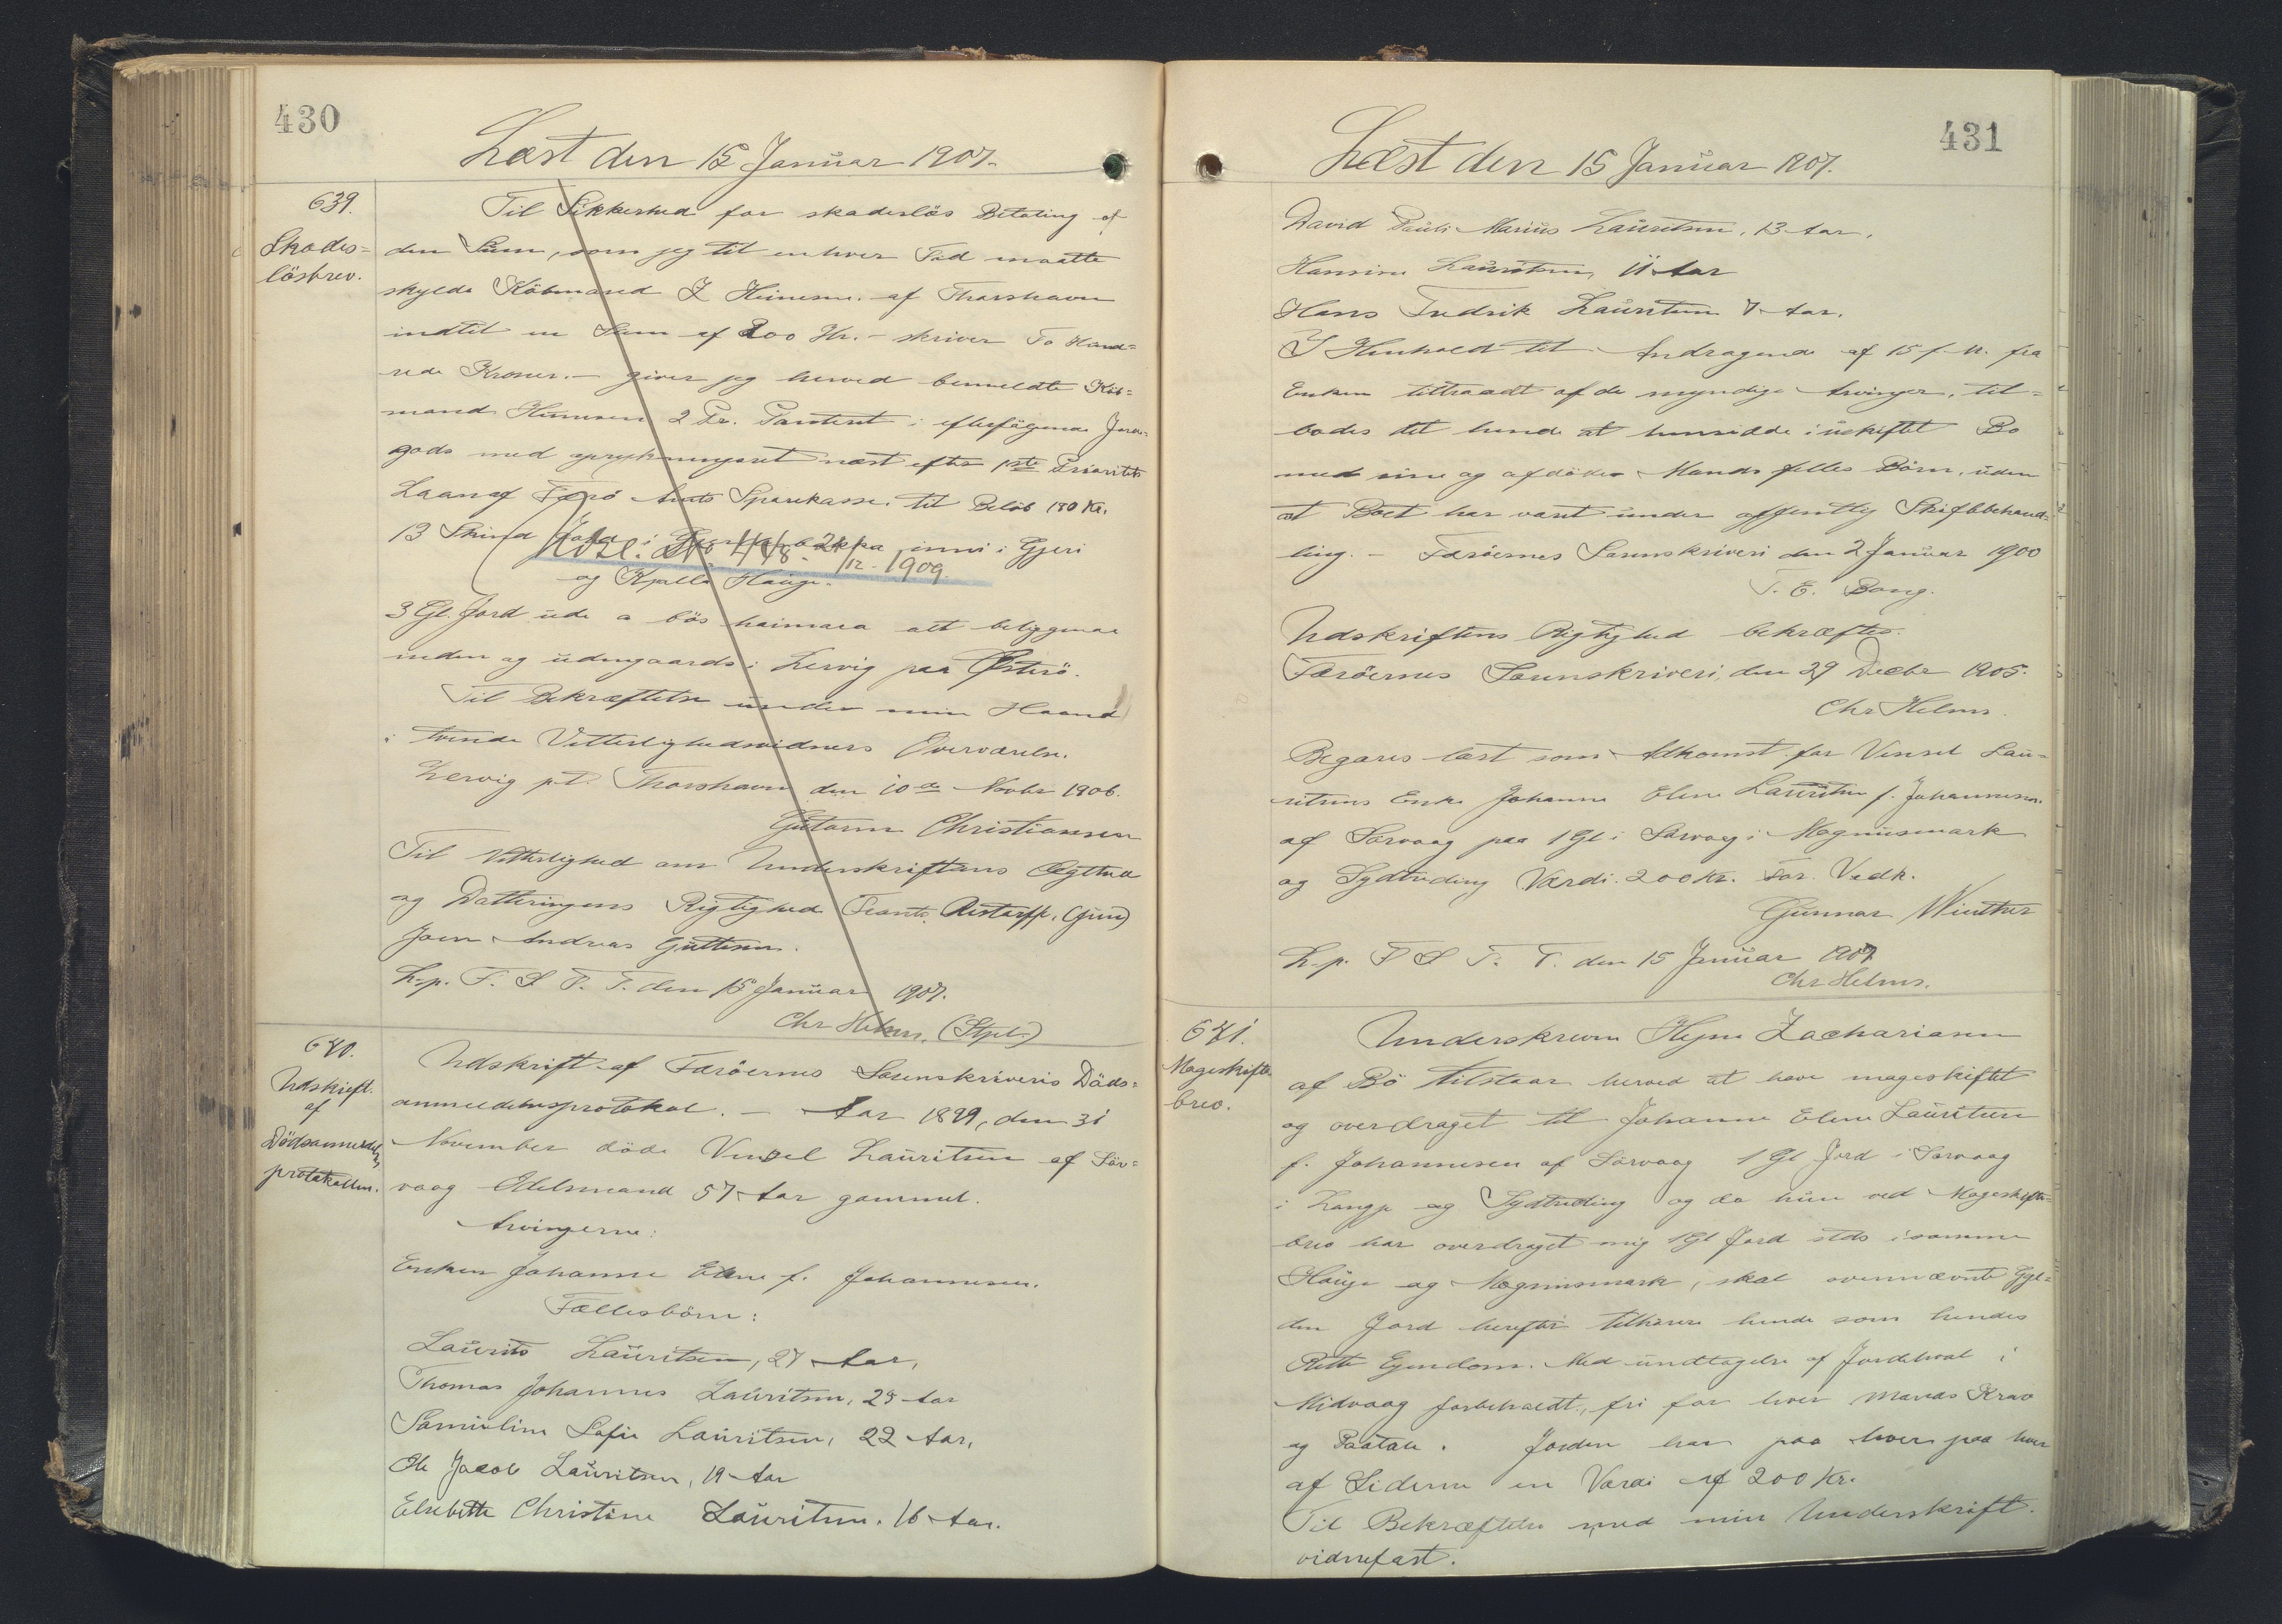 430
Læst den 15 Januar 1907.
639.
Skades=
lösbrev.
Til Sikkerhed for skadeslös Betaling af
den Sum, som jeg til enhver Tid maatte
skylde Köbmand Z Heinesen af Thorshavn
indtil en Sum af 200 Kr. - skriver To Hund=
rede Kroner. - giver jeg herved bemeldte Köb=
mand Heinesen 2 Pr. Panteret i efterfölgende Jorde=
gods med oprykningsret næst efter 1ste Prioritets
Laan af Færö Amts Sparekasse til Belöb 180 Kr.
13 Skind Jord i inni i Gjeri
Udsl. No 448. 21/12 - 1909.
og Hauge.
3 Gl. Jord ude a bös haimara alt beliggende
inden og udengaards i Lervig paa Österö.
Til Bekræftelse under min Haand
i tvende Vitterlighedsvidners Overværelse.
Lervig p.t. Thorshavn den 10de Novbr 1906.
Guttorm Christiansen
Til Vitterlighed om Underskriftens Ægthed
og Datteringens Rigtighed Restorff. (jun)
Joen Andreas Guttesen.
L-p. F. S. T. T. den 15 Januar 1907.
Chr Helms. (Stpl.)
640.
Udskrift.
af
Dödsanmeldelses
protokollen.
Udskrift af Færöernes Sorenskriveris Döds=
anmeldelsesprotokol. - Aar 1899, den 31
November döde Vensel Lauritsen af Sör=
vaag Odelsmand 57 Aar gammel.
Arvingerne:
Enken Johanne Elene f. Johannesen.
Fællesbörn:
Laurits Lauritsen, 27 Aar,
Thomas Johannes Lauritsen, 25 Aar
Samuline Sofie Lauritsen, 22 Aar,
Ole Jacob Lauritsen, 19 Aar
Elsebette Christine Lauritsen. 16 Aar.
431
Læst den 15 Januar 1907.
David Pauli Marius Lauritsen, 13 Aar,
Hansine Lauritsen, 11 Aar
Hans Fredrik Lauritsen 7 Aar.
I Henhold til Andragende af 15 f. M. fra
Enken tiltraadt af de myndige Arvinger, til=
lodes det hende at hensidde i uskiftet Bo
med sine og afdödes Mands fælles Börn, uden
at Boet har været under offentlig Skiftebehand=
ling. - Færöernes Sorenskriveri den 2 Januar 1900
T. E. Bang.
Udskriftens Rigtighed bekræftes.
Færöernes Sorenskriveri, den 29 Decbr 1905.
Chr Helms.
Begæres læst som Adkomst for Vensel Lau=
ritsens Enke Johanne Elene Lauritsen f. Johannesen.
af Sörvaag paa 1 Gl i Sörvaag i Magnusmark
og Sydtreding Værdi. 200 Kr. For. Vedk.
Gunnar Winther
L-p. F S T. T. den 15 Januar 1907
Chr Helms.
641.
Mageskifte
brev.
Underskreven Hejne Zachariasen
af Bö tilstaar herved at have mageskiftet
og overdraget til Johanne Elene Lauritsen
f. Johannesen af Sörvaag 1 Gl Jord i Sörvaag
i og Sydtreding og da hun ved Mageskifte=
brev har overdraget mig 1 Gl Jord stds i samme
Hauge og Magnusmark, skal overnævnte Gyl=
den Jord herefter tilhöre hende som hendes
Rette Ejendom. Med undtagelse af i
Midvaag forbeholdt, fri for hver Mands Krav
og Paatale. Jorden har paa hver paa hver
af Siderne en Værdi af 200 Kr.
Til Bekræftelse med min Underskrift.
vidnefast.